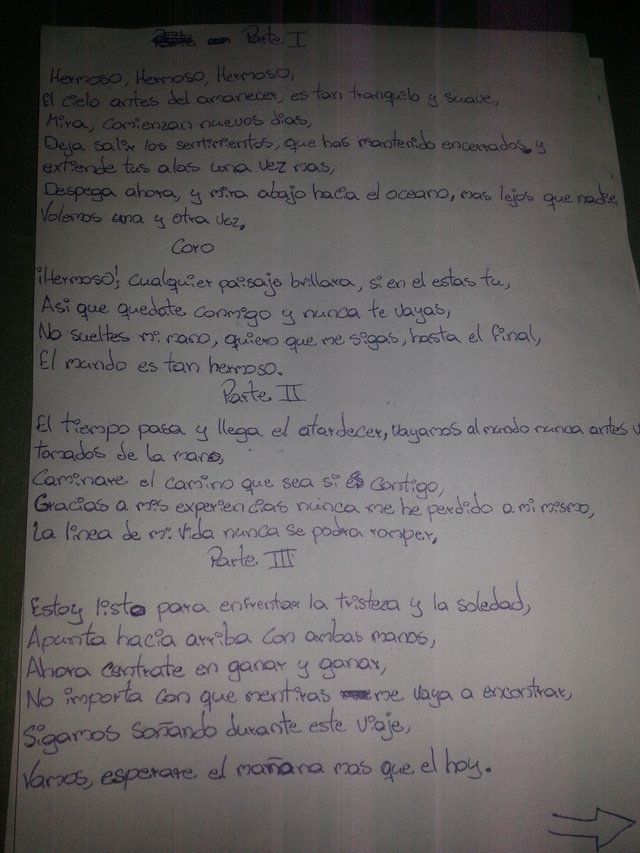 Parte I
Hermoso, Hermoso, Hermoso,
El cielo antes del amanecer, es tan tranquilo y suave,
Mira, comienzan nuevos dias,
Deja salir los sentimientos, que has mantenido encerrados y
extiende tus alas una vez mas,
Despega ahora, y mira abajo hacia el oceano, mas lejos que nadie
Volemos una y otra vez.
Coro
¡Hermoso!, cualquier paisaje brillara, si en el estas tu,
Asi que quedate conmigo y nunca te vayas,
No sueltes mi mano, quiero que me sigas, hasta el final,
El mundo es tan hermoso.
Parte II
El tiempo pasa y llega el atardecer, vayamos al mundo nunca antes v
tomados de la mano,
Caminare el camino que sea si es contigo,
Gracias a mis experiencias nunca me he perdido a mi mismo,
La linea de mi vida nunca se podra romper,
Parte III
Estoy listo para enfrentar la tristeza y la soledad,
Apunta hacia arriba con ambas manos,
Ahora centrate en ganar y ganar,
No importa con que mentiras me vaya a encontrar,
Sigamos soñando durante este viaje,
Vamos, esperare el mañana mas que el hoy.